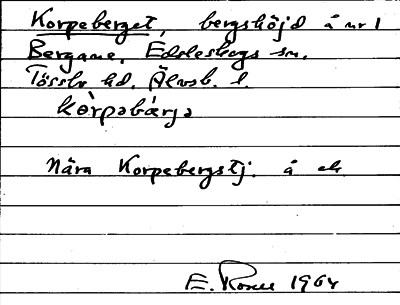 Korpeberget, bergshöjd å nr 1
Bergane, Edsleskogs sn.
Tössbo hd. Älvsb. l.
kòrpəbærjə
Nära Korpebergstj. å ek.
E. 1964